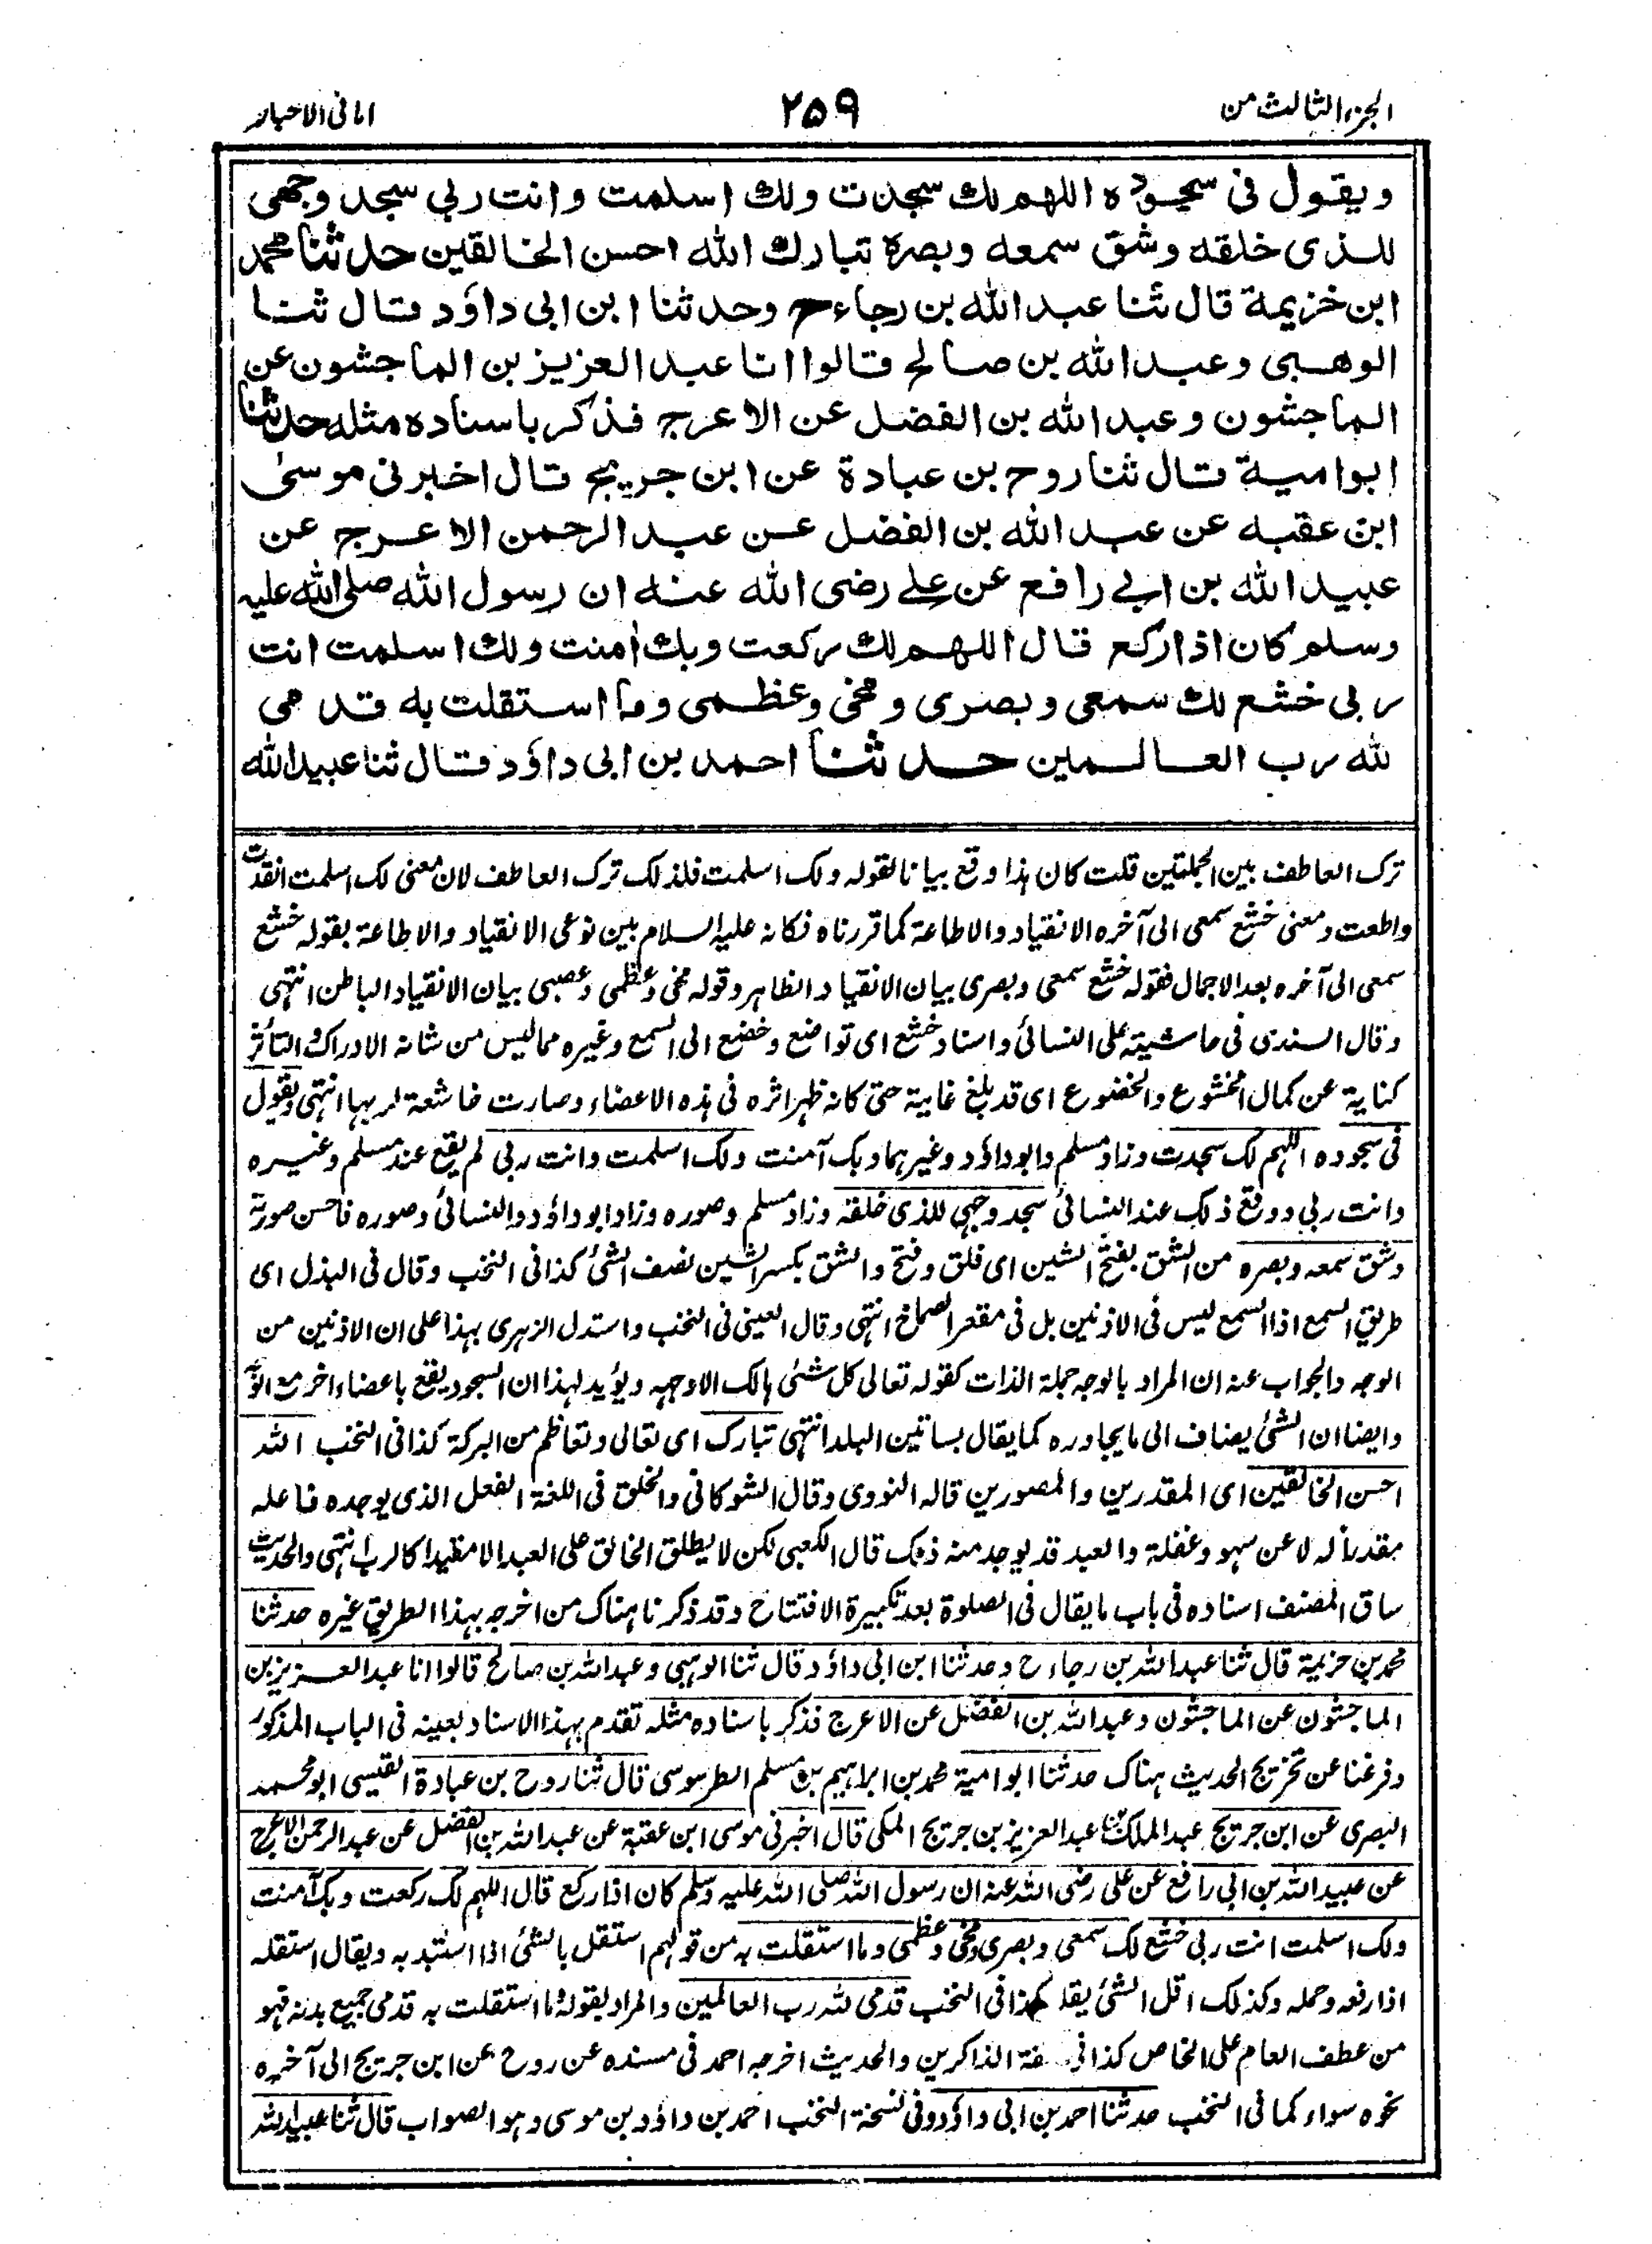 الجزء الثالث من
٢٥٩
امانی الاحبار
ويقول فى سجوده اللهم لك سجدت ولك اسلمت وانت ربي سجد وجهى
للذى خلقه وشق سمعه وبصره تبارك الله احسن الخالقين حدثنا محمد
ابن خزيمة قال ثنا عبدالله بن رجاء ح وحدثنا ابن ابى داؤد قال ثنا
الوهبى وعبدالله بن صالح قالوا انا عبدالعزيز بن الماجشون عن
الماجشون وعبدالله بن الفضل عن الاعرج فذكر باسناده مثله حدثنا
ابوامية قال ثنا روح بن عبادة عن ابن جريج قال اخبرنى موسى
ابن عقبه عن عبدالله بن الفضل عن عبدالرحمن الاعرج عن
عبيدالله بن ابي رافع عن علي رضى الله عنه ان رسول الله صلى الله عليه
وسلم كان اذا ركع قال اللهم لك ركعت وبك اٰمنت ولك اسلمت انت
ربى خشع لك سمعى وبصرى ومخى وعظمى وما استقلت به قدمى
لله رب العالمين حدثنا احمد بن ابى داؤد قال ثنا عبيدالله
ترک العاطف بین الجملتین قلت کان ہذا وقع بیانا لقولہ ولک اسلمت فلذلک ترک العاطف لان معنی لک اسلمت انقدت
واطعت ومعنی خشع سمعی الی آخرہ الانقیاد والاطاعة کما قررناہ فکانہ علیہ السلام بین نوعی الانقیاد والاطاعة بقولہ خشع
سمعی الی آخرہ بعد الاجمال فقولہ خشع سمعی وبصری بیان الانقیاد الظاہر وقولہ مخی وعظمی وعصبی بیان الانقیاد الباطن انتہی
وقال السندی فی حاشیتہ علی النسائی واسناد خشع ای تواضع وخضع الی السمع وغیرہ مما لیس من شانہ الادراک والتأثر
کنایة عن کمال الخشوع والخضوع ای قد بلغ غایة حتی کانہ ظہر اثرہ فی ہذہ الاعضاء وصارت خاشعة لربہا انتہی ویقول
فی سجودہ اللہم لک سجدت وزاد مسلم وابوداؤد وغیرہما وبک آمنت ولک اسلمت وانت ربی لم یقع عند مسلم وغیرہ
وانت ربی ووقع ذلک عند النسائی سجد وجہی للذی خلقہ وزاد مسلم وصورہ وزاد ابوداؤد والنسائی وصورہ فاحسن صورتہ
وشق سمعہ وبصرہ من الشق بفتح الشین ای فلق وفتح والشق بکسر الشین نصف الشئ کذا فی النخب وقال فی البذل ای
طریق السمع اذ السمع لیس فی الاذنین بل فی مقعر الصماخ انتہی وقال العینی فی النخب واستدل الزہری بہذا علی ان الاذنین من
الوجہ والجواب عنہ ان المراد بالوجہ جملة الذات کقولہ تعالی کل شئ ہالک الا وجہہ ویؤید لہذا ان السجود یقع باعضاء اخر مع الوجہ
وایضا ان الشئ یضاف الی ما یجاورہ کما یقال بساتین البلد انتہی تبارک ای تعالی وتعاظم من البرکة کذا فی النخب اللہ
احسن الخالقین ای المقدرین والمصورین قالہ النووی وقال الشوکانی والخلق فی اللغة الفعل الذی یوجدہ فاعلہ
مقدرا لہ لا عن سہو وغفلة والعبد قد یوجد منہ ذلک قال الکعبی لکن لا یطلق الخالق علی العبد الا مقیدا کالرب انتہی والحدیث
ساق المصنف اسنادہ فی باب ما یقال فی الصلوة بعد تکبیرة الافتتاح وقد ذکرنا ہناک من اخرجہ بہذا الطریق غیرہ حدثنا
محمد بن خزیمة قال ثنا عبداللہ بن رجاء ح وحدثنا ابن ابی داؤد قال ثنا الوہبی وعبداللہ بن صالح قالوا انا عبدالعزیز بن
الماجشون عن الماجشون وعبداللہ بن الفضل عن الاعرج فذکر باسنادہ مثلہ تقدم بہذا الاسناد بعینہ فی الباب المذکور
وفرغنا عن تخریج الحدیث ہناک حدثنا ابوامیة محمد بن ابراہیم بن مسلم الطرسوسی قال ثنا روح بن عبادة القیسی ابومحمد
البصری عن ابن جریج عبدالملک بن عبدالعزیز بن جریج المکی قال اخبرنی موسی ابن عقبة عن عبداللہ بن الفضل عن عبدالرحمن الاعرج
عن عبیداللہ بن ابی رافع عن علی رضی اللہ عنہ ان رسول اللہ صلی اللہ علیہ وسلم کان اذا رکع قال اللہم لک رکعت وبک آمنت
ولک اسلمت انت ربی خشع لک سمعی وبصری ومخی وعظمی وما استقلت بہ من قولہم استقل بالشئ اذا استبد بہ ویقال استقلہ
اذا رفعہ وحملہ وکذلک اقل الشئ یقلہ کذا فی النخب قدمی للہ رب العالمین والمراد بقولہ ما استقلت بہ قدمی جمیع بدنہ فہو
من عطف العام علی الخاص کذا فی الذاکرین والحدیث اخرجہ احمد فی مسندہ عن روح عن ابن جریج الی آخرہ
نحوہ سواء کما فی النخب حدثنا احمد بن ابی داؤد وفی نسخة النخب احمد بن داؤد بن موسی وہو الصواب قال ثنا عبیداللہ